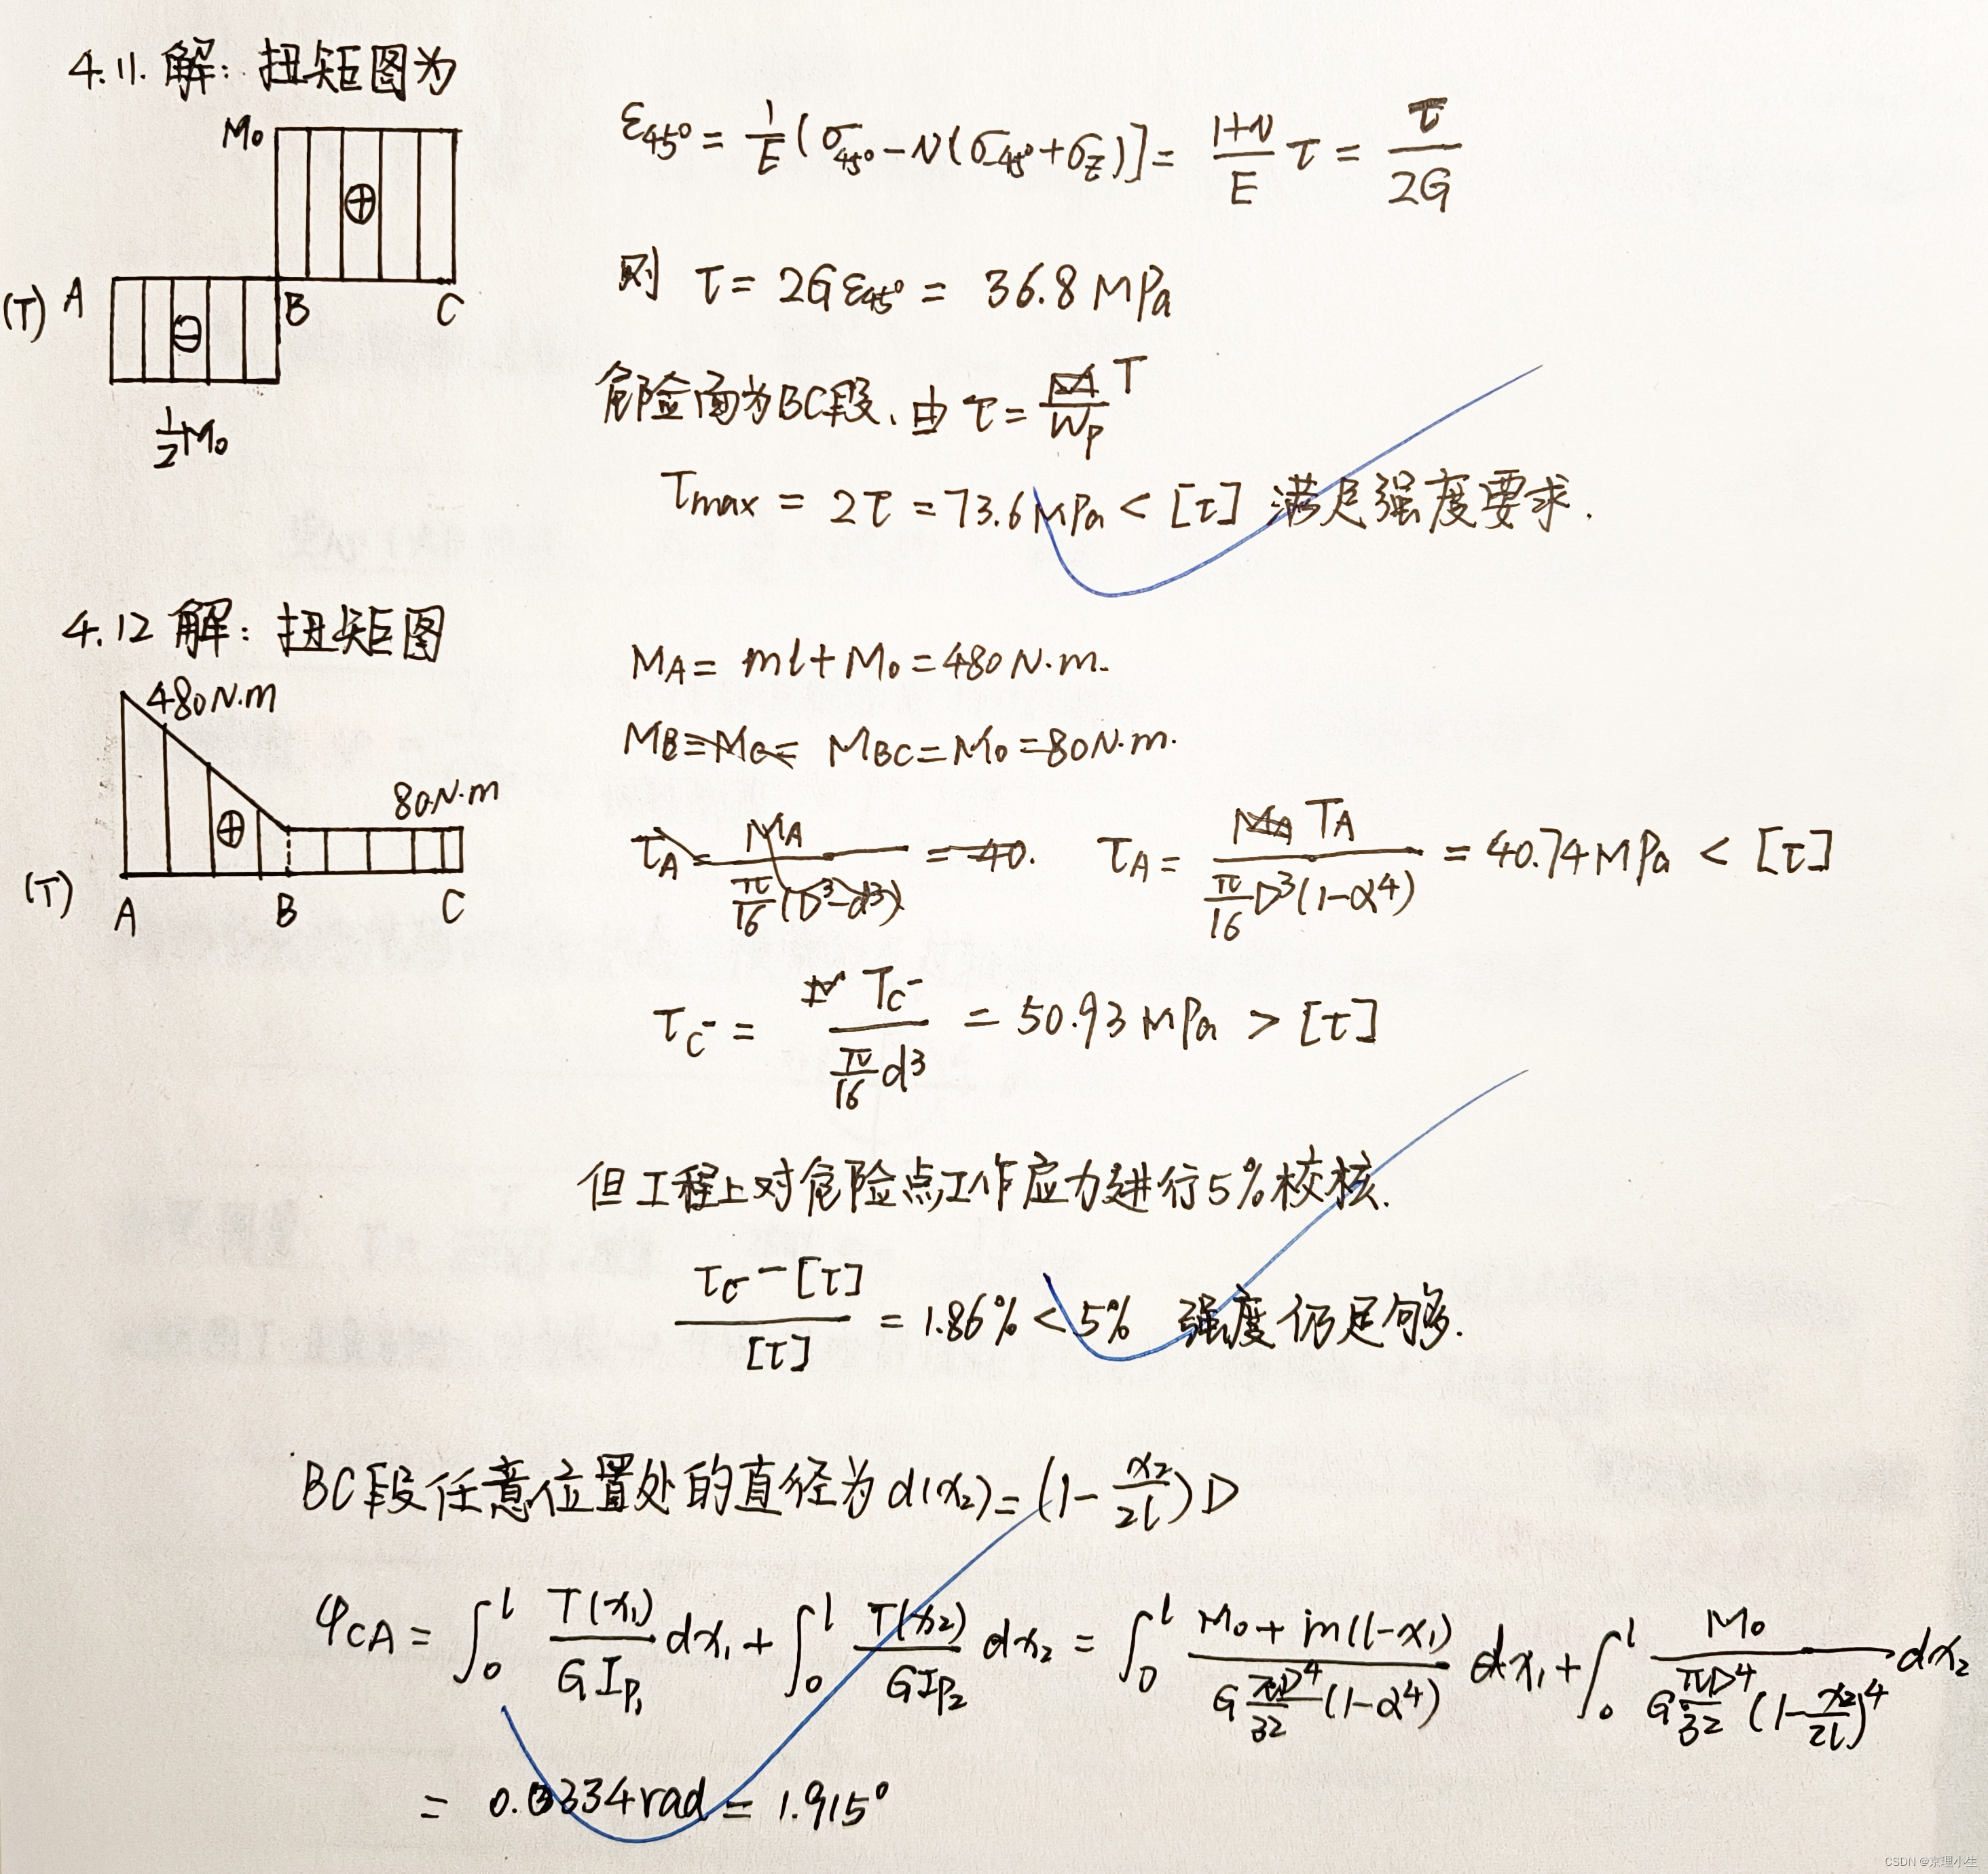 4.11. 解: 扭矩图为
M₀
⊕
(T) A B C
⊖
½M₀
ε₄₅° = 1/E (σ₄₅° - ν(σ₋₄₅° + σz)] = (1+ν)/E τ = τ/2G
则 τ = 2Gε₄₅° = 36.8 MPa
危险面为BC段、由 τ = T/Wp
τmax = 2τ = 73.6 MPa < [τ] 满足强度要求.
4.12 解: 扭矩图
480N·m
80N·m
⊕
(T) A B C
MA = ml + M₀ = 480 N·m.
MB = MC = MBC = M₀ = 80N·m.
τA = MA / (π/16 (D³-d³)) = 40. τA = TA / (π/16 D³(1-α⁴)) = 40.74 MPa < [τ]
τC⁻ = TC⁻ / (π/16 d³) = 50.93 MPa > [τ]
但工程上对危险点工作应力进行5%校核.
(τC⁻ - [τ]) / [τ] = 1.86% < 5% 强度仍足够.
BC段任意位置处的直径为 d(x₂) = (1 - x₂/2l) D
φCA = ∫₀ˡ T(x₁)/GIp₁ dx₁ + ∫₀ˡ T(x₂)/GIp₂ dx₂ = ∫₀ˡ (M₀ + m(l-x₁)) / (G πD⁴/32 (1-α⁴)) dx₁ + ∫₀ˡ M₀ / (G πD⁴/32 (1 - x₂/2l)⁴) dx₂
= 0.0334 rad = 1.915°
CSDN @京理小生